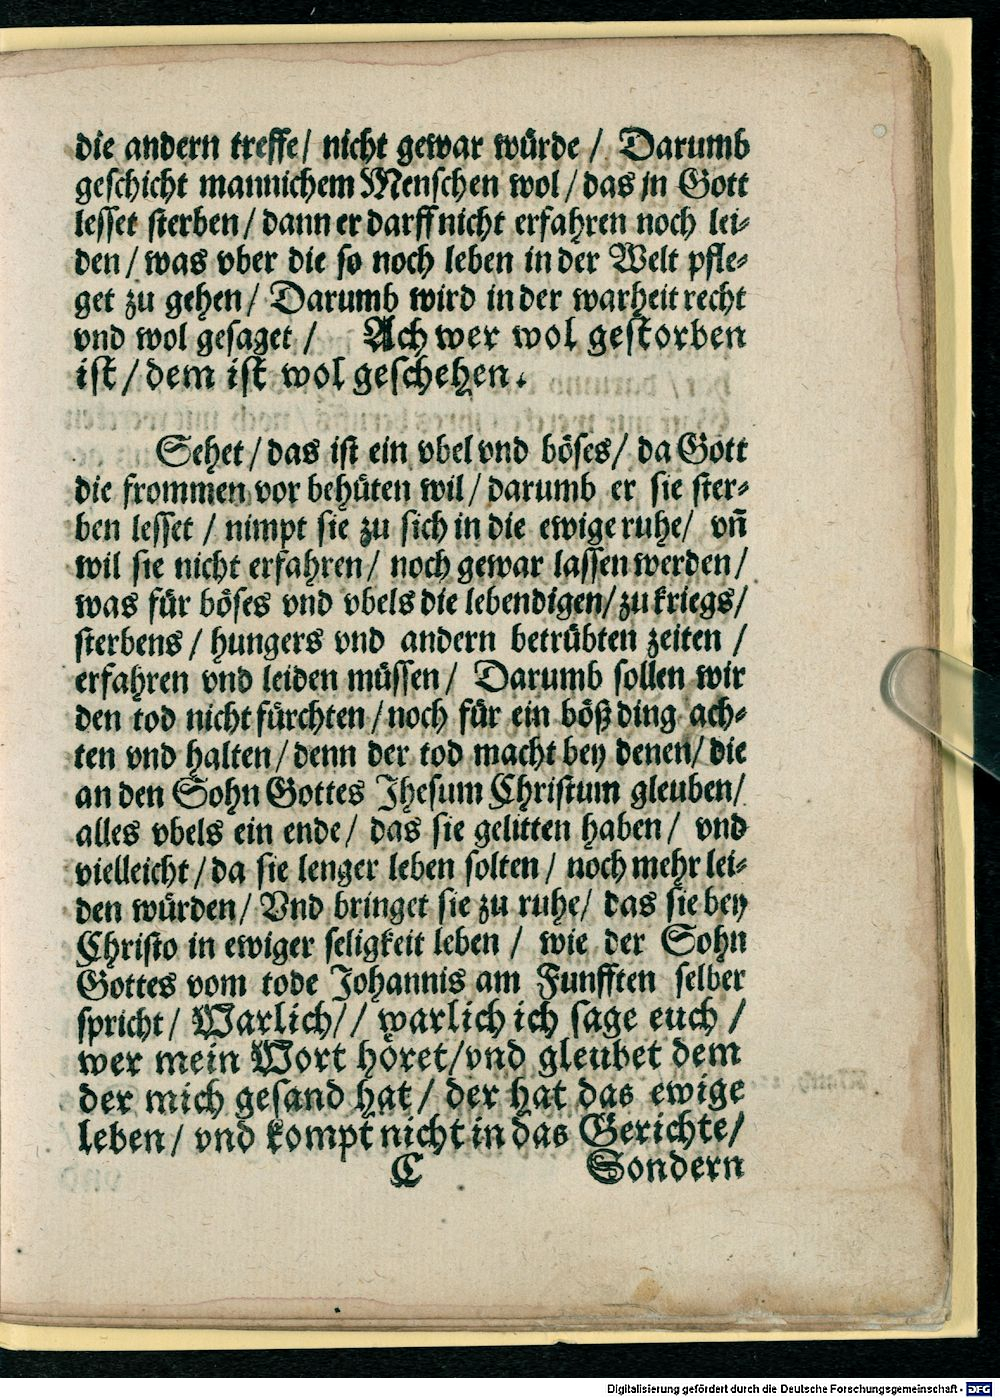 die andern treffe/ nicht gewar würde / Darumb
geschicht mannichem Menschen wol / das jn Gott
lesset sterben / dann er darff nicht erfahren noch lei⸗
den / was vber die so noch leben in der Welt pfle⸗
get zu gehen / Darumb wird in der warheit recht
vnd wol gesaget / Ach wer wol gestorben
ist / dem ist wol geschehen.
Sehet / das ist ein vbel vnd böses / da Gott
die frommen vor behüten wil / darumb er sie ster⸗
ben lesset / nimpt sie zu sich in die ewige ruhe / vñ
wil sie nicht erfahren / noch gewar lassen werden /
was für böses vnd vbels die lebendigen / zu kriegs /
sterbens / hungers vnd andern betrübten zeiten /
erfahren vnd leiden müssen / Darumb sollen wir
den tod nicht fürchten / noch für ein böß ding ach⸗
ten vnd halten / denn der tod macht bey denen / die
an den Sohn Gottes Jhesum Christum gleuben /
alles vbels ein ende / das sie gelitten haben / vnd
vielleicht / da sie lenger leben solten / noch mehr lei⸗
den würden / Vnd bringet sie zu ruhe / das sie bey
Christo in ewiger seligkeit leben / wie der Sohn
Gottes vom tode Johannis am Funfften selber
spricht / Warlich // warlich ich sage euch /
wer mein Wort höret / vnd gleubet dem
der mich gesand hat / der hat das ewige
leben / vnd kompt nicht in das Gerichte /
C Sondern
Digitalisierung gefördert durch die Deutsche Forschungsgemeinschaft - DFG